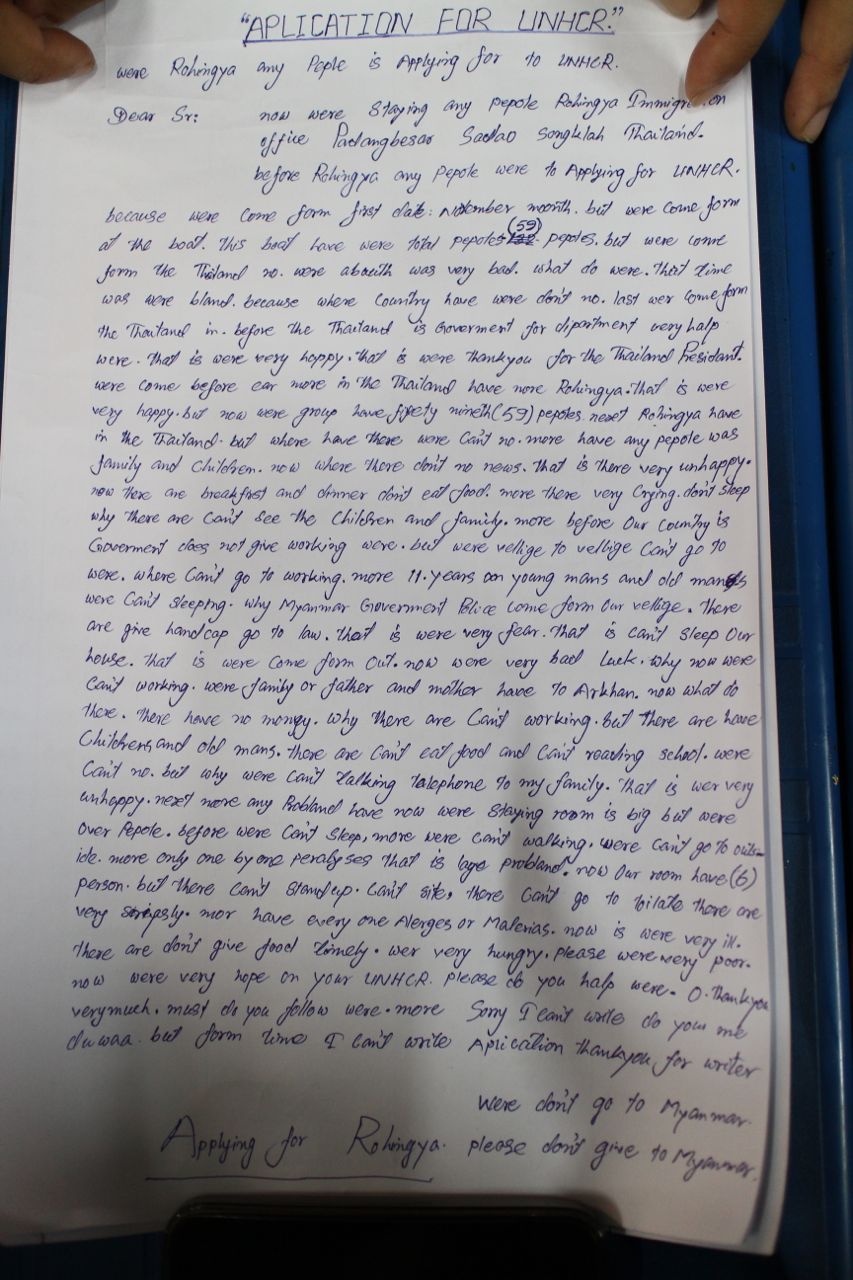 "APLICATION FOR UNHCR."
were Rohingya any Peple is Applying for to UNHCR.
Dear Sr: now were staying any pepole Rohingya Immigr on
office Padangbesar Sadao Songklah Thailand.
before Rohingya any Pepole were to Applying for UNHCR.
because were come form first date: November moonth. but were come form
at the boat. this boat have were total pepoles (59) pepoles. but were come
form the Thailand no. were abouith was very bad. what do were. that time
was were bland. because where Country have were don't no. last wer come form
the Thailand in. before the Thailand is Goverment for dipartment very halp
were. that is were very happy. that is were thankyou for the Thailand Presidant.
were come before ear more in the Thailand have more Rohingya. that is were
very happy. but now were group have fifety nineth (59) pepoles. nexet Rohingya have
in the Thailand. but where have there were Can't no. more have any pepole was
family and Children. now where there don't no news. that is there very unhappy.
now there are breakfirst and dinner don't eat food. more there very Crying. don't sleep
why there are can't see the Children and family. more before Our Country is
Goverment does not give working were. but were vellige to vellige Can't go to
were. where Can't go to working. more 11. years on young mans and old mans
were Can't sleeping. why Myanmar Goverment Police come form our vellige. there
are give handcap go to law. that is were very fear. that is can't sleep Our
house. that is were come form out. now were very bad luck. why now were
Can't working. were family or father and mother have to Arkhan. now what do
there. there have no money. why there are Can't working. but there are have
Childrens and old mans. there are Can't eat food and Can't reading school. were
Can't no. but why were Can't talking talephone to my family. that is wer very
unhappy. nexet more any Probland have now were staying room is big but were
over Pepole. before were Can't sleep, more were can't walking. were Can't go to outs-
ide. more only one by one peralyses that is lage probland. now Our room have (6)
person. but there can't standup. Can't site, there Can't go to toilate there are
very seriopsly. mor have every one Alerges or Malerias. now is were very ill.
there are don't give food timely. wer very hungry. please were very poor.
now were very hope on your UNHCR. please do you halp were. O. thankyou
verymuch. must do you follow were. more Sorry I can't write do your me
duwaa. but form time I can't write Aplication thankyou for writer
were don't go to Myanmar.
Applying for Rohingya. please don't give to Myanmar.